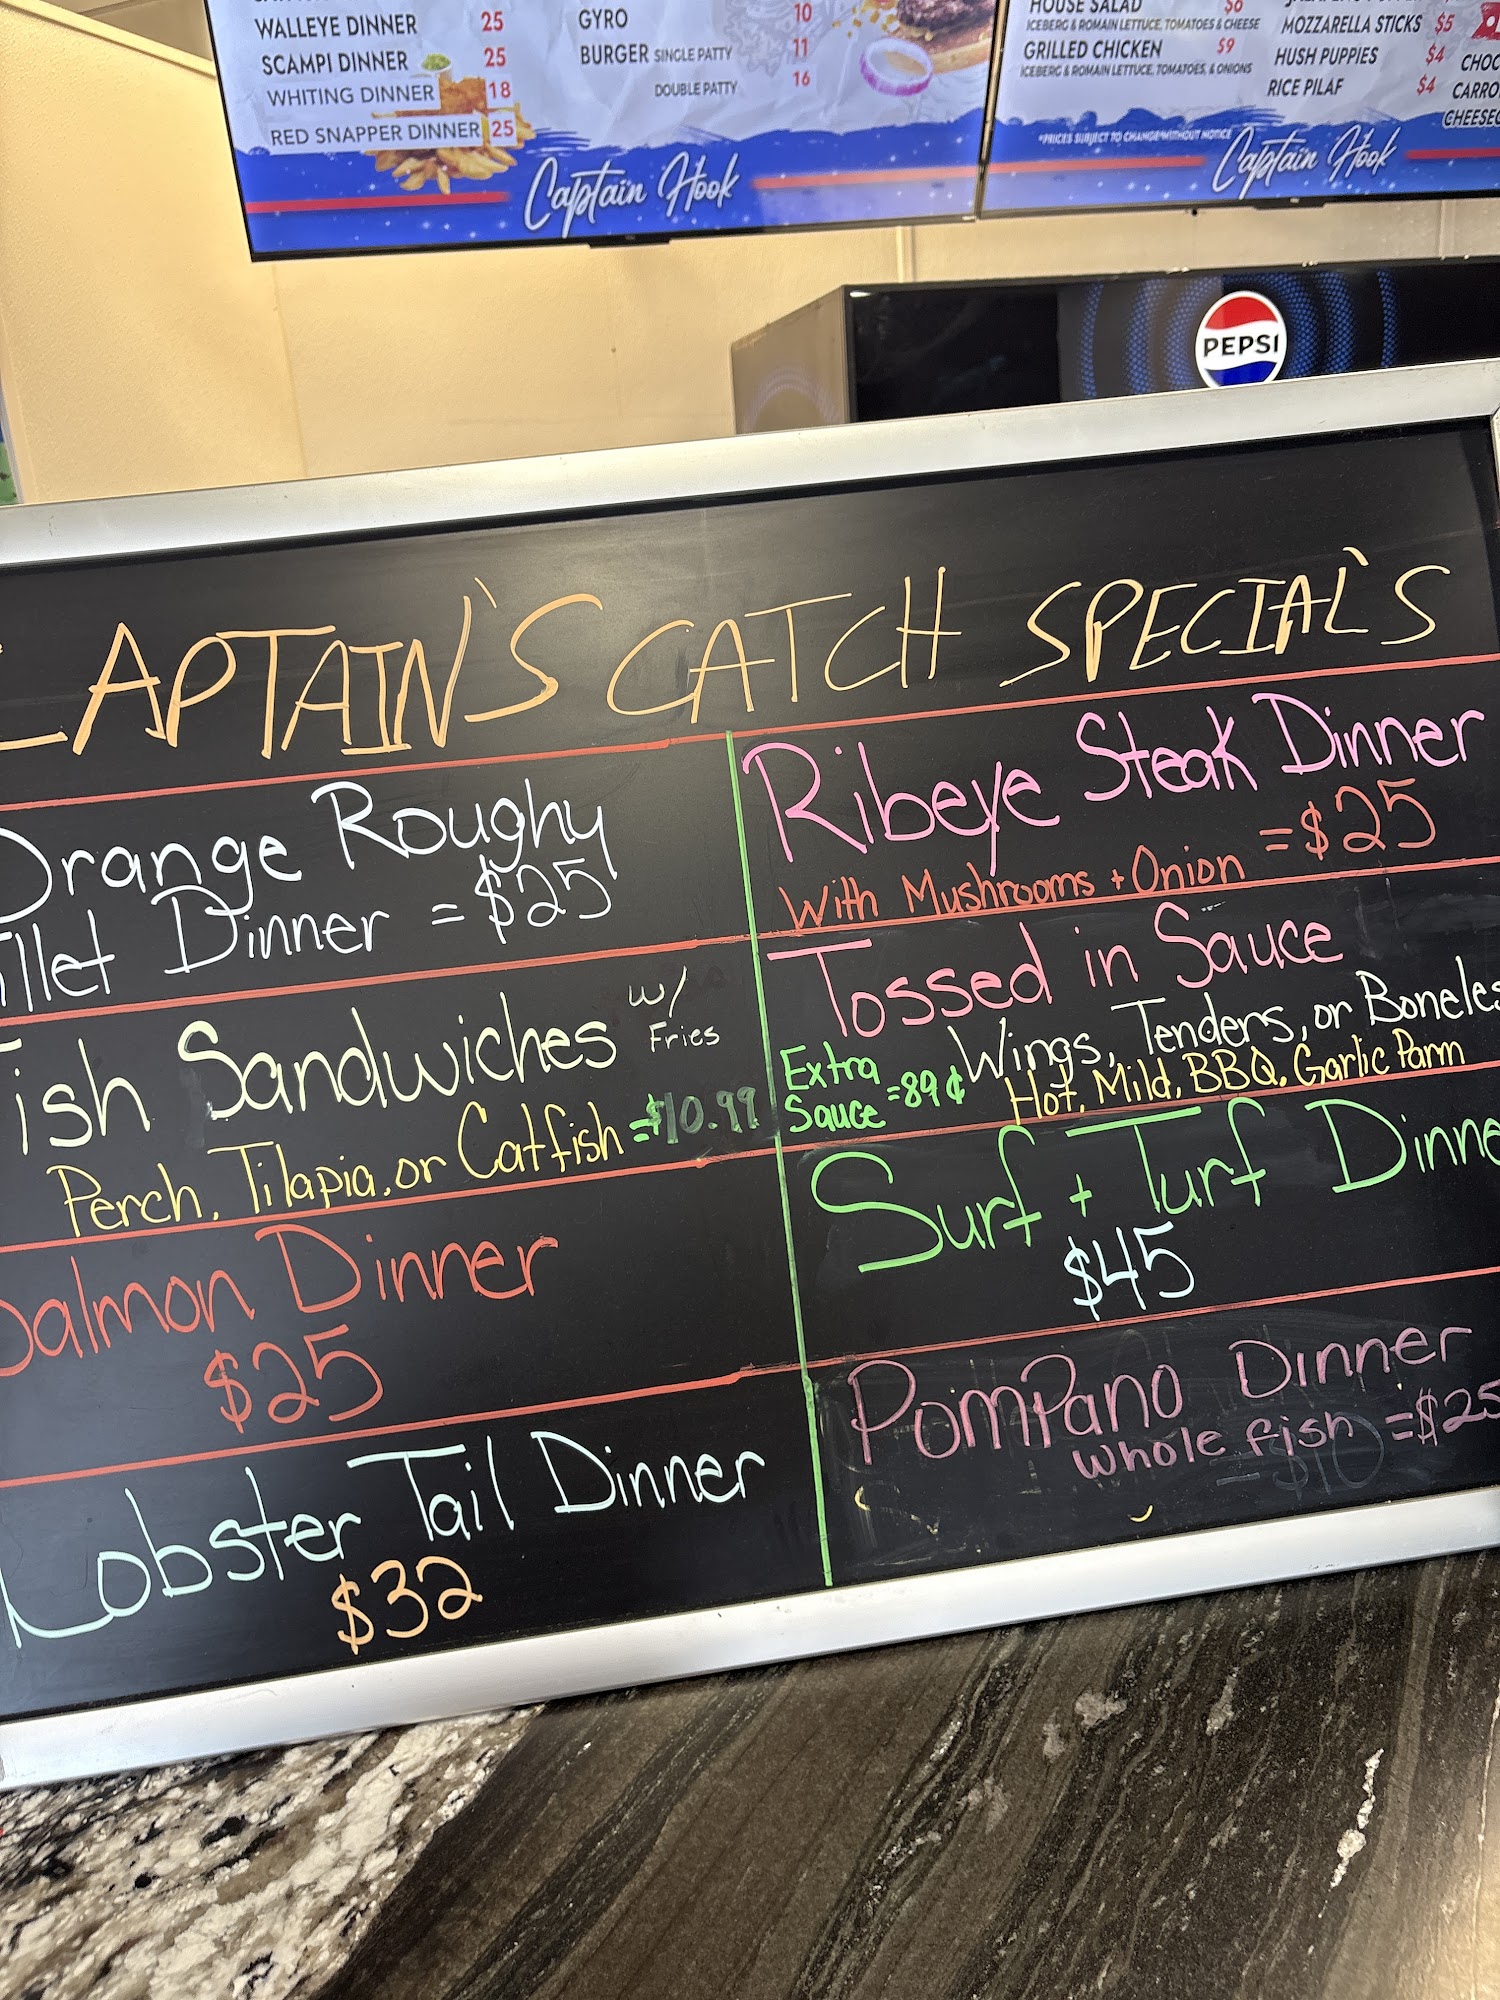 WALLEYE DINNER 25
SCAMPI DINNER 25
WHITING DINNER 18
RED SNAPPER DINNER 25
GYRO 10
BURGER SINGLE PATTY 11
DOUBLE PATTY 16
Captain Hook
HOUSE SALAD $6
ICEBERG & ROMAIN LETTUCE, TOMATOES & CHEESE
GRILLED CHICKEN $9
ICEBERG & ROMAIN LETTUCE, TOMATOES, & ONIONS
MOZZARELLA STICKS $5
HUSH PUPPIES $4
RICE PILAF $4
CHOC
CARRO
CHEESEC
*PRICES SUBJECT TO CHANGE WITHOUT NOTICE
Captain Hook
PEPSI
CAPTAIN'S CATCH SPECIAL'S
Orange Roughy
illet Dinner = $25
ish Sandwiches w/ Fries
Perch, Tilapia, or Catfish = $10.99
Salmon Dinner
$25
Lobster Tail Dinner
$32
Ribeye Steak Dinner
With Mushrooms + Onion = $25
Tossed in Sauce
Wings, Tenders, or Boneles
Extra Sauce = 89¢
Hot, Mild, BBQ, Garlic Parm
Surf + Turf Dinne
$45
PomPano Dinner
whole fish = $25